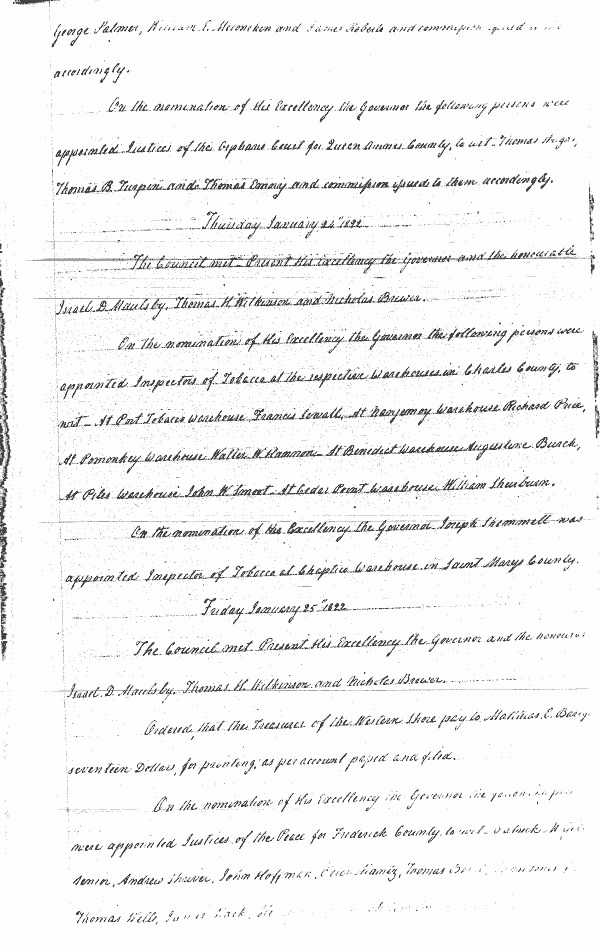 George Palmer, William E. and James Roberts and commission
accordingly.
On the nomination of His Excellency the Governor the following persons were
appointed Justices of the Orphans Court for Queen Annes County, to wit Thomas
Thomas B. Turpin and Thomas Emory and commission issued to them accordingly.
Thursday January 24th 1822
The Council met Present His Excellency the Governor and the honourable
Israel D. Maulsby, Thomas H. Wilkinson and Nicholas Brewer.
On the nomination of His Excellency the Governor the following persons were
appointed Inspectors of Tobacco at the respective Warehouses in Charles County, to
wit - At Port Tobacco Warehouse Francis, At Nanjemoy Warehouse Richard Price,
At Pomonkey Warehouse Walter W. - At Benedict Warehouse Augustine Burch,
At Piles Warehouse John W Smoot - At Cedar Point Warehouse William Shewburn.
On the nomination of His Excellency the Governor Joseph was
appointed Inspector of Tobacco at Chaptico Warehouse in Saint Marys County.
Friday January 25th 1822
The Council met Present His Excellency the Governor and the
Israel D. Maulsby, Thomas H. Wilkinson and Nicholas Brewer.
Ordered, that the Treasurer of the Western Shore pay to E.
seventeen Dollars, for printing, as per account passed and filed.
On the nomination of His Excellency the Governor the
were appointed Justices of the Peace for Frederick County, to wit -
Senior, Andrew Shriver, John Hoffman, Thomas
Thomas Wells,